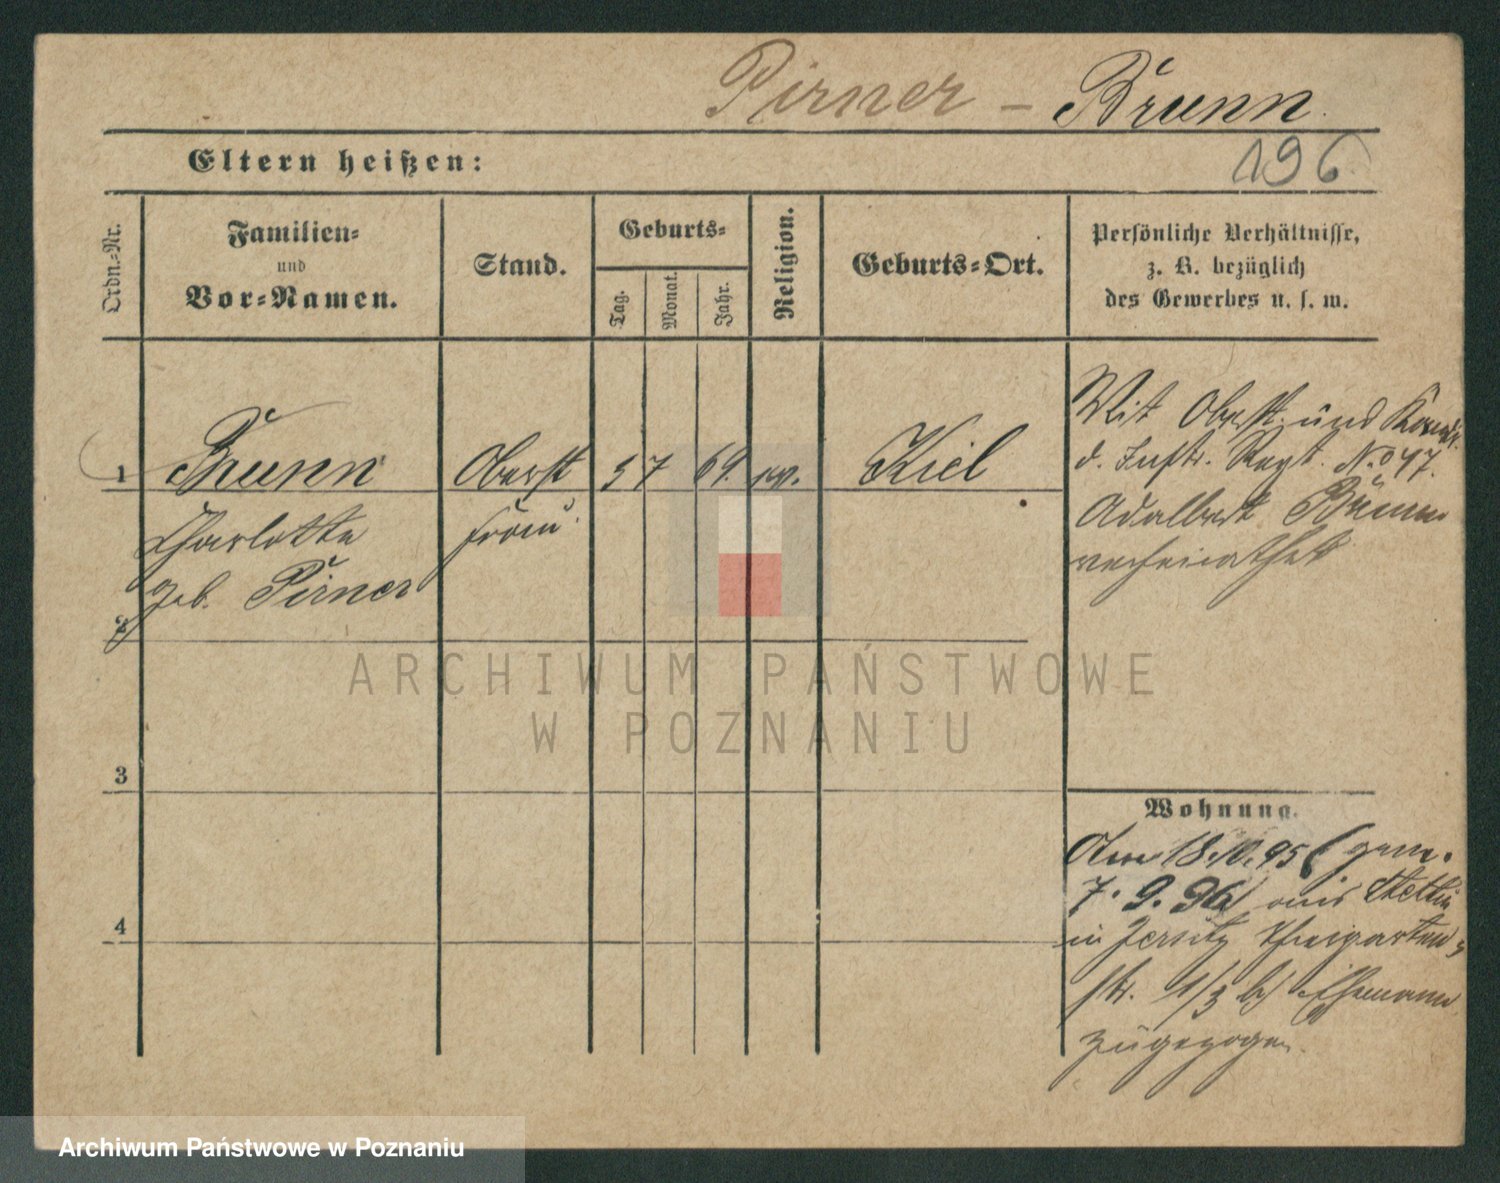 Pirner – Brunn.
Eltern heißen:
196
Ordn.-Nr.
Familien-
und
Vor-Namen.
Stand.
Geburts-
Tag.
Monat.
Jahr.
Religion.
Geburts-Ort.
Persönliche Verhältnisse,
z. B. bezüglich
des Gewerbes u. s. w.
1
Brunn
Oberst
5 7 69. ev.
Kiel
Charlotte
frau
geb. Pirner
2
3
4
Mit Oberst und
d. Inftr. Regt. No 47.
Adalbert Brunn
verheirathet
Wohnung.
Am 18.10.95 (gem.
7. 9. 96) aus Stettin
in Jersitz Thiergarten-
str. 1/3 b/ Ehemann
zugezogen.
ARCHIWUM PAŃSTWOWE
W POZNANIU
Archiwum Państwowe w Poznaniu